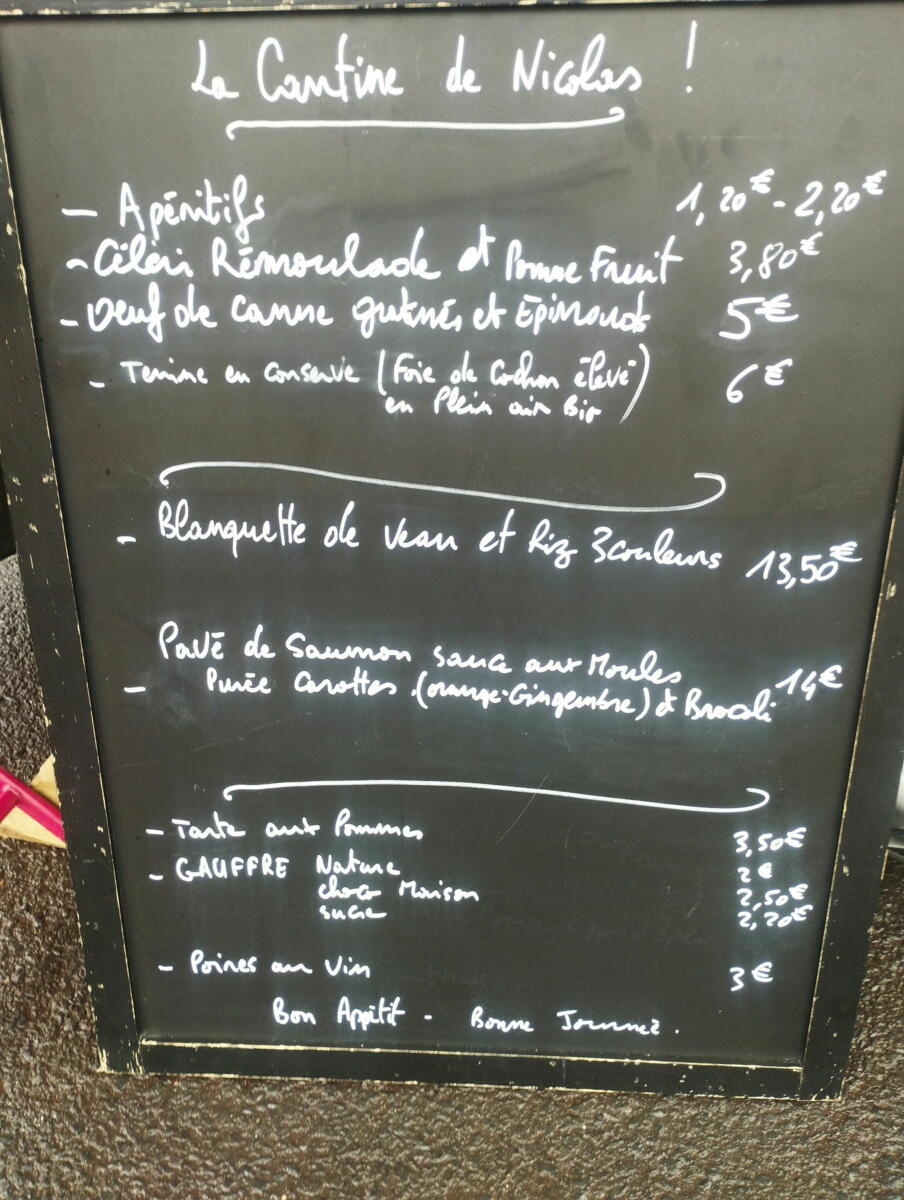 La Cantine de Nicolas !
- Apéritifs 1,20€ - 2,20€
- Céleri Rémoulade et Pomme Fruit 3,80€
- Oeuf de Canne gratinés et Epinards 5€
- Terrine en conserve (Foie de Cochon élevé 6€
en Plein air Bio)
- Blanquette de Veau et Riz 3 couleurs 13,50€
Pavé de Saumon sauce aux Moules
- Purée Carottes (orange-Gingembre) et Brocoli 14€
- Tarte aux Pommes 3,50€
- GAUFFRE Nature 2€
choco Maison 2,50€
sucre 2,20€
- Poires au Vin 3€
Bon Appétit - Bonne Journée.